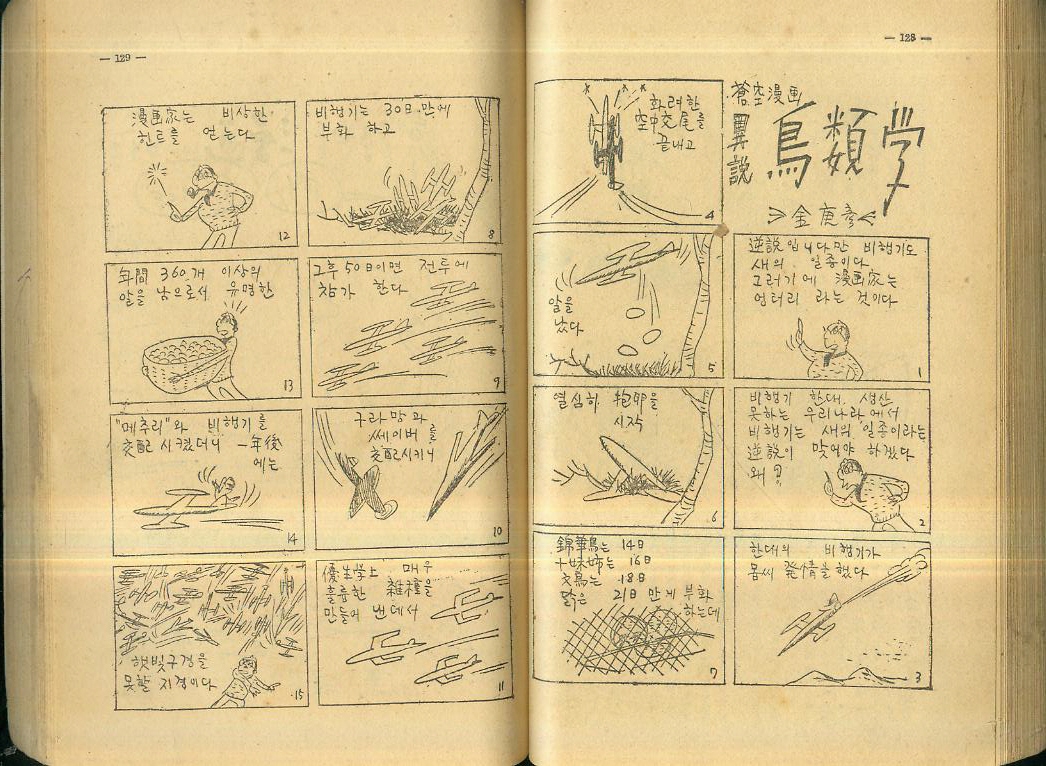 — 128 —
蒼空漫画
異説
鳥類学
金庚彦
逆説입니다만 비행기도
새의 일종이다
그러기에 漫画家는
엉터리 라는 것이다
1
비행기 한대 생산
못하는 우리나라에서
비행기는 새의 일종이라는
逆説이 맛어야 하겠다
왜?
2
한대의 비행기가
몹씨 発情을 했다
3
화려한
空中交尾를
끝내고
4
알을
낫다
5
열심히 抱卵을
시작
6
錦華鳥는 14日
十姉妹는 16日
文鳥는 18日
닭은 21日 만에 부화
하는데
7
— 129 —
비행기는 30日 만에
부화 하고
8
그후 50日이면 전투에
참가 한다
9
구라망과
쎄이버를
交配시키니
10
優生学上 매우
훌륭한 雑種을
만들어 낸데서
11
漫画家는 비상한
힌트를 얻는다
12
年間 360개 이상의
알을 낳으로서 유명한
13
"메추리"와 비행기를
交配 시켰더니 一年後
에는
14
햇빛구경을
못할 지경이다
15